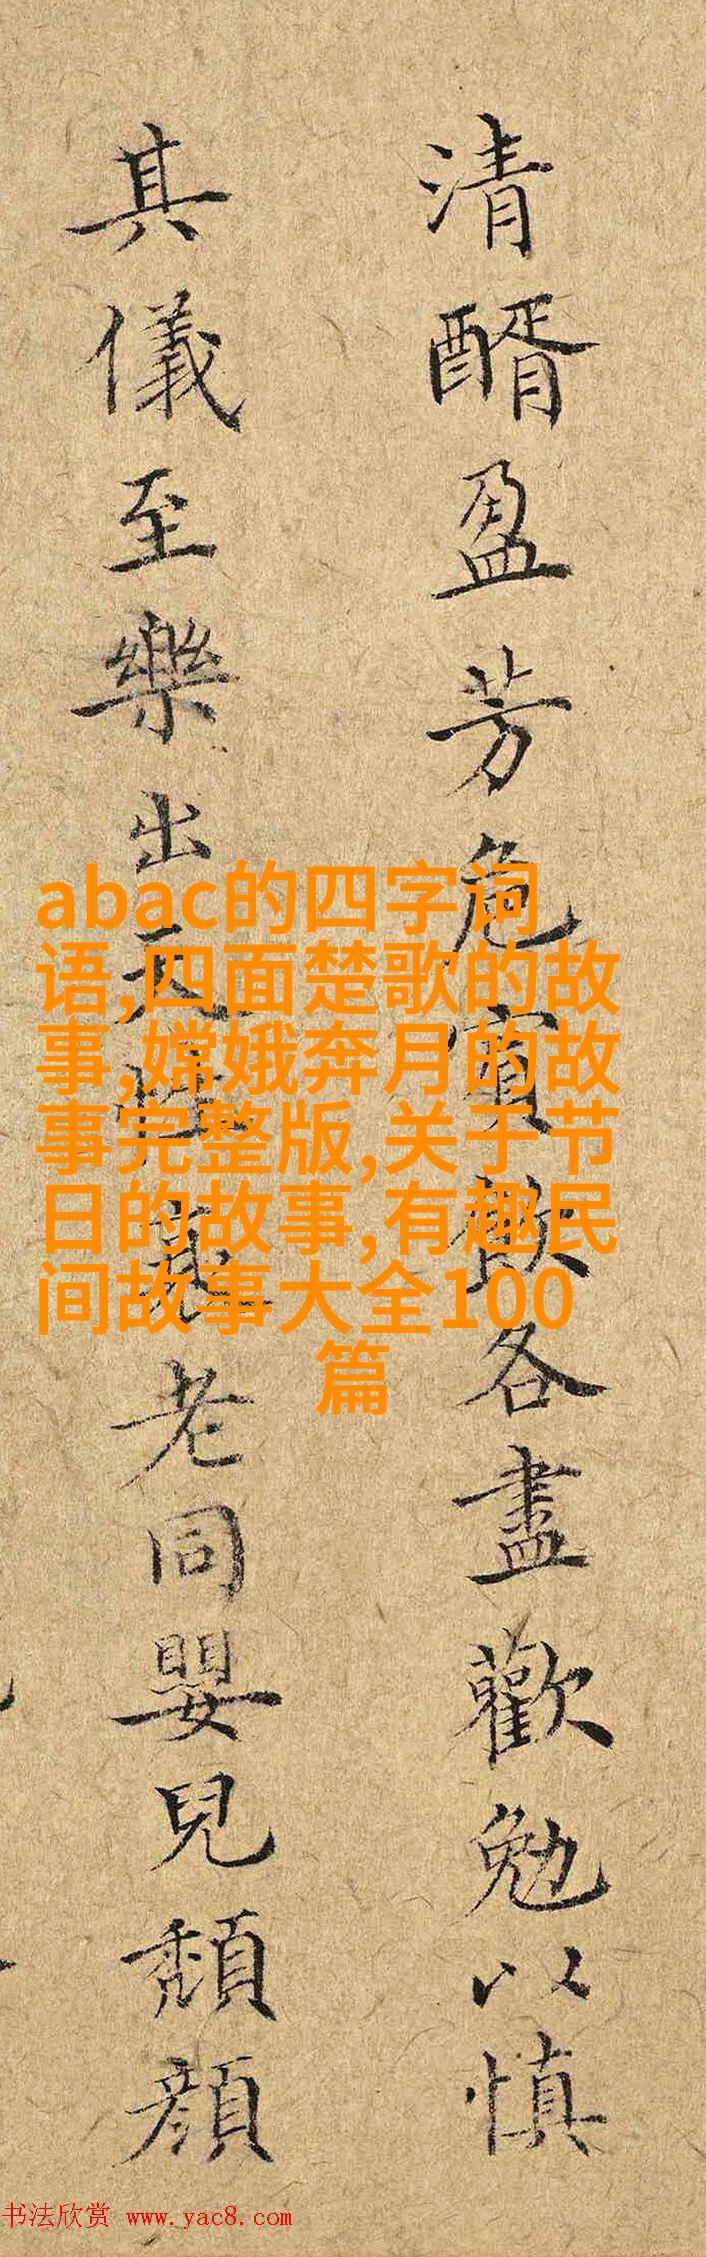 清醑盈芳危賓歡各盡歡勉以慎
其儀至樂出天性耄老同嬰兒頹顏
abac的四字词
语,四面楚歌的故
事,嫦娥奔月的故
事完整版,关于节
日的故事,有趣民
间故事大全100
篇
书法欣赏 www.yac8.com